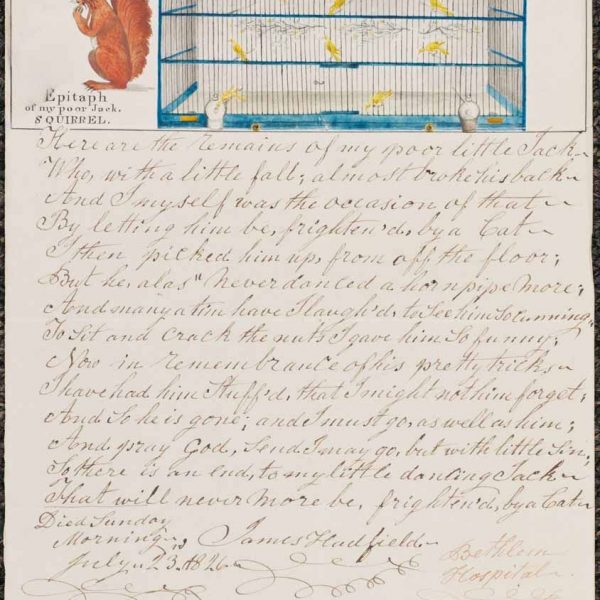 Epitaph
of my poor Jack.
SQUIRREL.
Here are the remains of my poor little Jack
Who, with a little fall; almost broke his back
And I myself was the occasion of that
By letting him be, frighten'd, by a Cat
I then picked him up, from off the floor;
But he, alas" never danced a horn pipe more;
And many a tim have I laugh'd, to See him So cunning;
To Sit and crack the nuts I gave him So funny;
Now in remembrance of his pretty tricks
I have had him Stuff'd, that I might not him forget;
And So he is gone; and I must go, as well as him;
And pray God, Send I may go, but with little Sin;
So there is an end, to my little dancing Jack
That will never more be, frighten'd, by a Cat
Died Sunday
Morning James Hadfield
July 23. 1826 Bethlem
Hospital